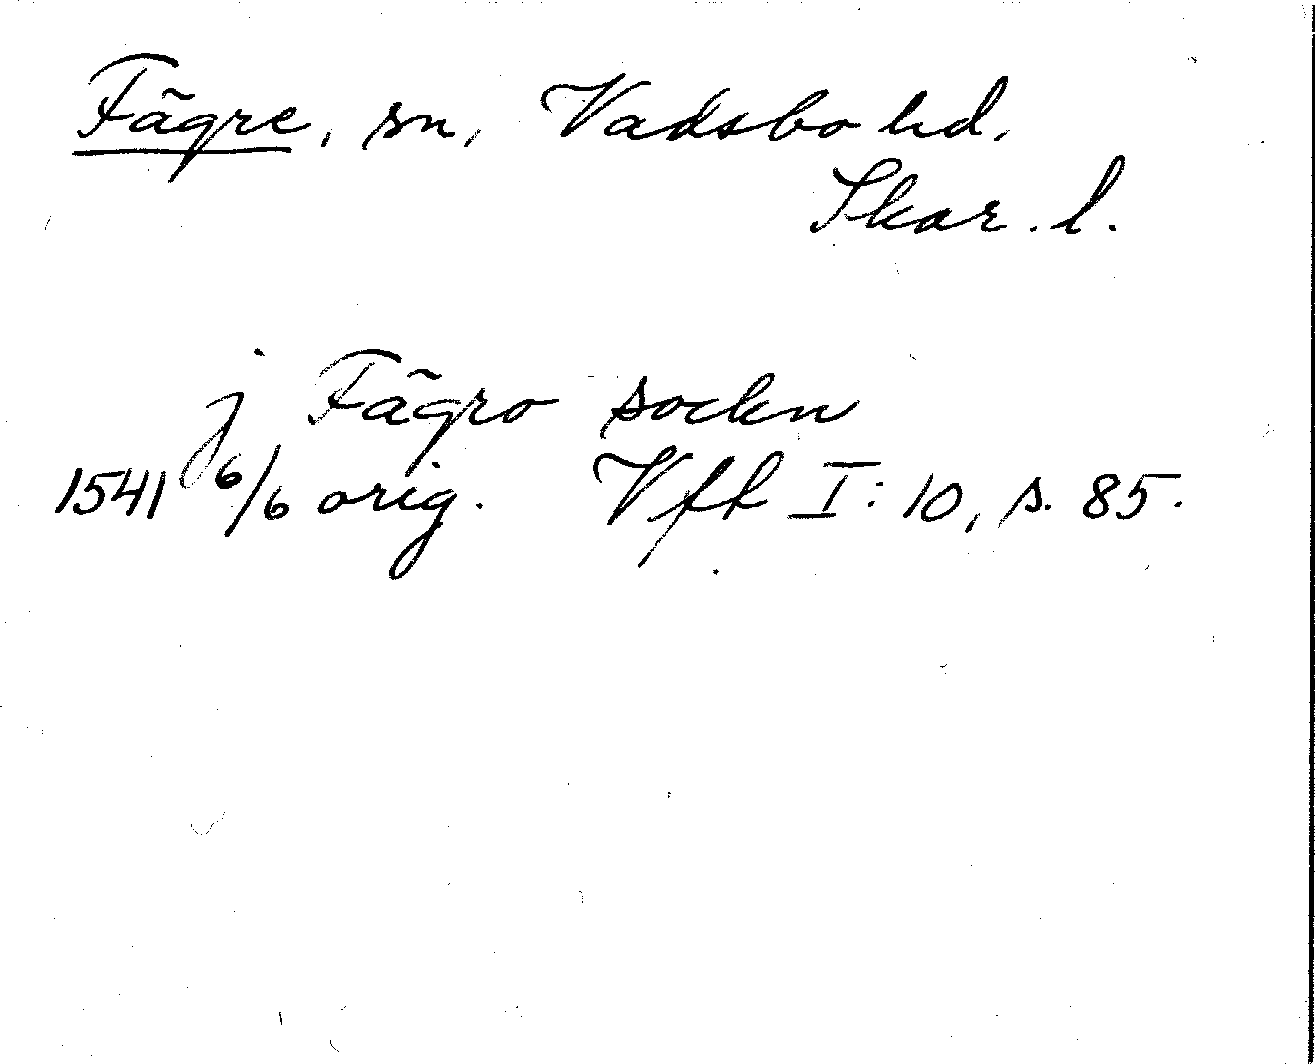 Fägre, sn, Vadsbo hd.
Skar. l.
j Fägro sockn
1541 6/6 orig. Vft I: 10, s. 85.